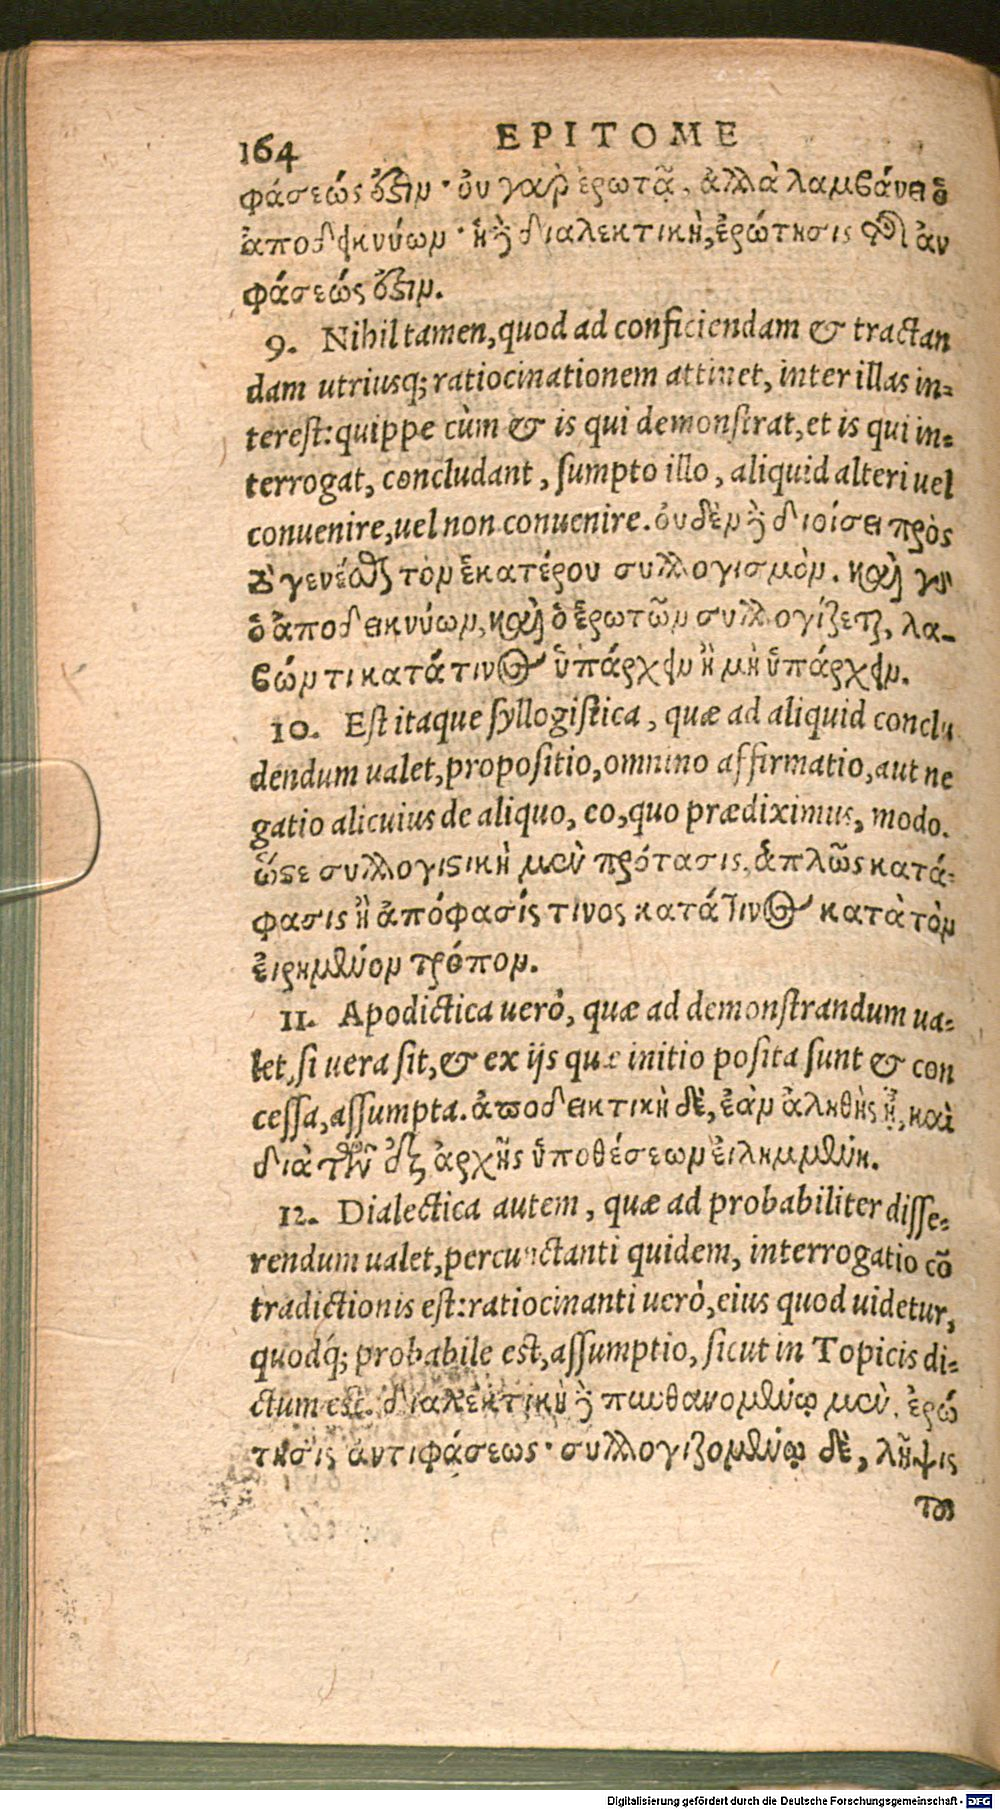 164 EPITOME
φάσεώς ὅξιμ· οὐ γαρ ἐρωτᾷ, ἀλλὰ λαμβάνει ὁ
ἀποδεικνύωμ· ἡ δὲ διαλεκτικὴ, ἐρώτησις ἀν
φάσεώς ὅξιμ.
9. Nihil tamen, quod ad conficiendam & tractan
dam utriusq; ratiocinationem attinet, inter illas in-
terest: quippe cùm & is qui demonstrat, et is qui in-
terrogat, concludant, sumpto illo, aliquid alteri uel
conuenire, uel non conuenire. οὐδὲμ δὲ διοίσει πρὸς
τὸ γενέσθαι τὸμ ἑκατέρου συλλογισμὸμ. καὶ γὰρ
ὁ ἀποδεικνύωμ, καὶ ὁ ἐρωτῶμ συλλογίζεται, λα-
βώμ τι κατά τινος ὑπάρχειμ ἢ μὴ ὑπάρχειμ.
10. Est itaque syllogistica, quæ ad aliquid conclu
dendum ualet, propositio, omnino affirmatio, aut ne
gatio alicuius de aliquo, eo, quo prædiximus, modo.
ὥστε συλλογιστικὴ μὲν πρότασις, ἁπλῶς κατά-
φασις ἢ ἀπόφασίς τινος κατά τινος κατὰ τὸμ
εἰρημένομ τρόπομ.
11. Apodictica uerò, quæ ad demonstrandum ua-
let, si uera sit, & ex ijs quæ initio posita sunt & con
cessa, assumpta. ἀποδεικτικὴ δὲ, ἐὰμ ἀληθὴς ᾖ, καὶ
διὰ τῶν ἐξ ἀρχῆς ὑποθέσεωμ εἰλημμένη.
12. Dialectica autem, quæ ad probabiliter disse-
rendum ualet, percunctanti quidem, interrogatio cō
tradictionis est: ratiocinanti uerò, eius quod uidetur,
quodq́; probabile est, assumptio, sicut in Topicis di-
ctum est. διαλεκτικὴ δὲ πυνθανομένῳ μὲν, ἐρώ
τησις ἀντιφάσεως· συλλογιζομένῳ δὲ, λῆψις
τοῦ
Digitalisierung gefördert durch die Deutsche Forschungsgemeinschaft - DFG